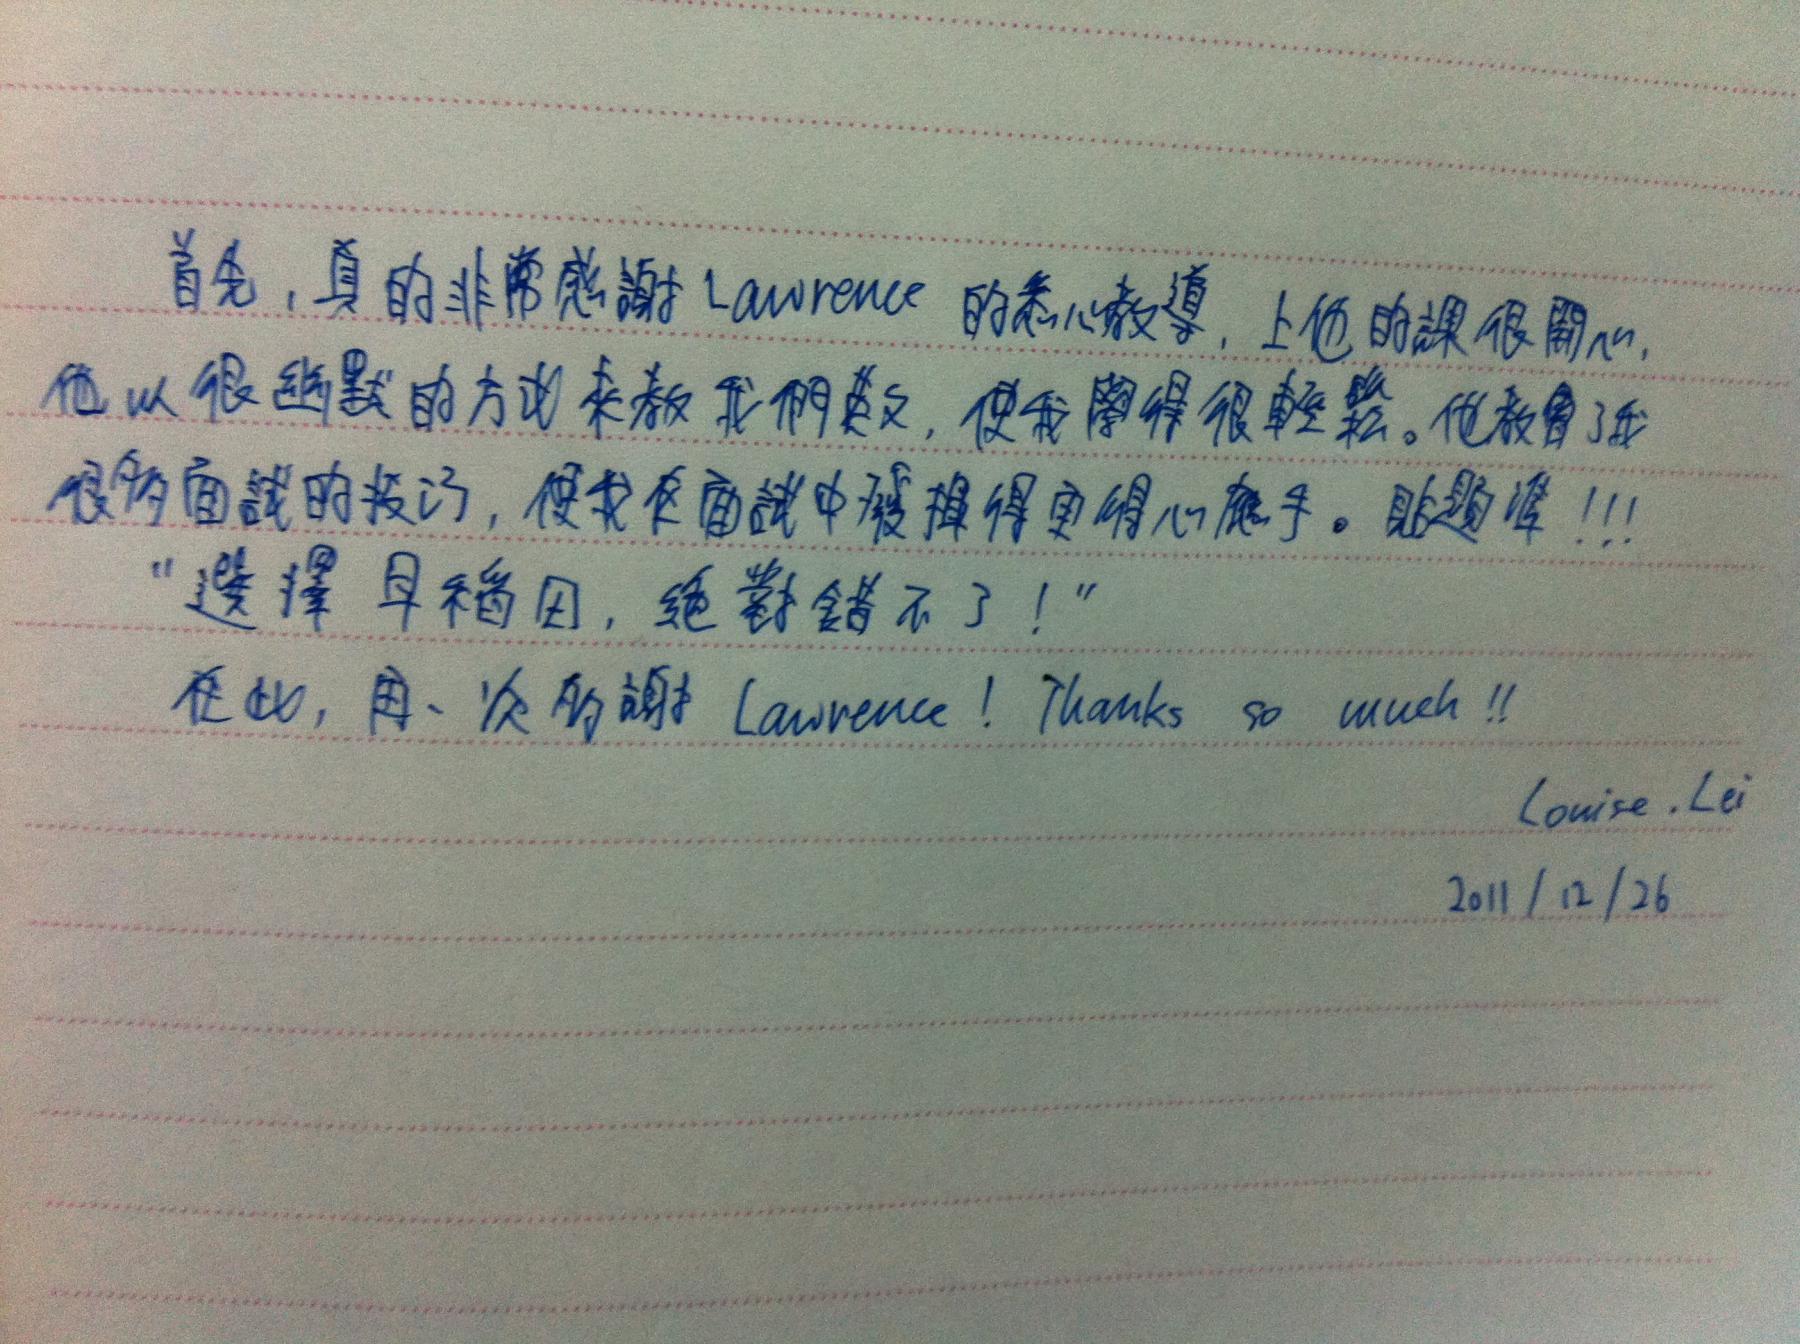 首先，真的非常感謝Lawrence的悉心教導，上他的課很開心，
他以很幽默的方式來教我們英文，使我學得很輕鬆。他教會了我
很多面試的技巧，使我在面試中發揮得更得心應手。貼題準!!!
"選擇早稻田，絕對錯不了!"
在此，再一次的謝Lawrence! Thanks so much!!
Louise.Lei
2011/12/26